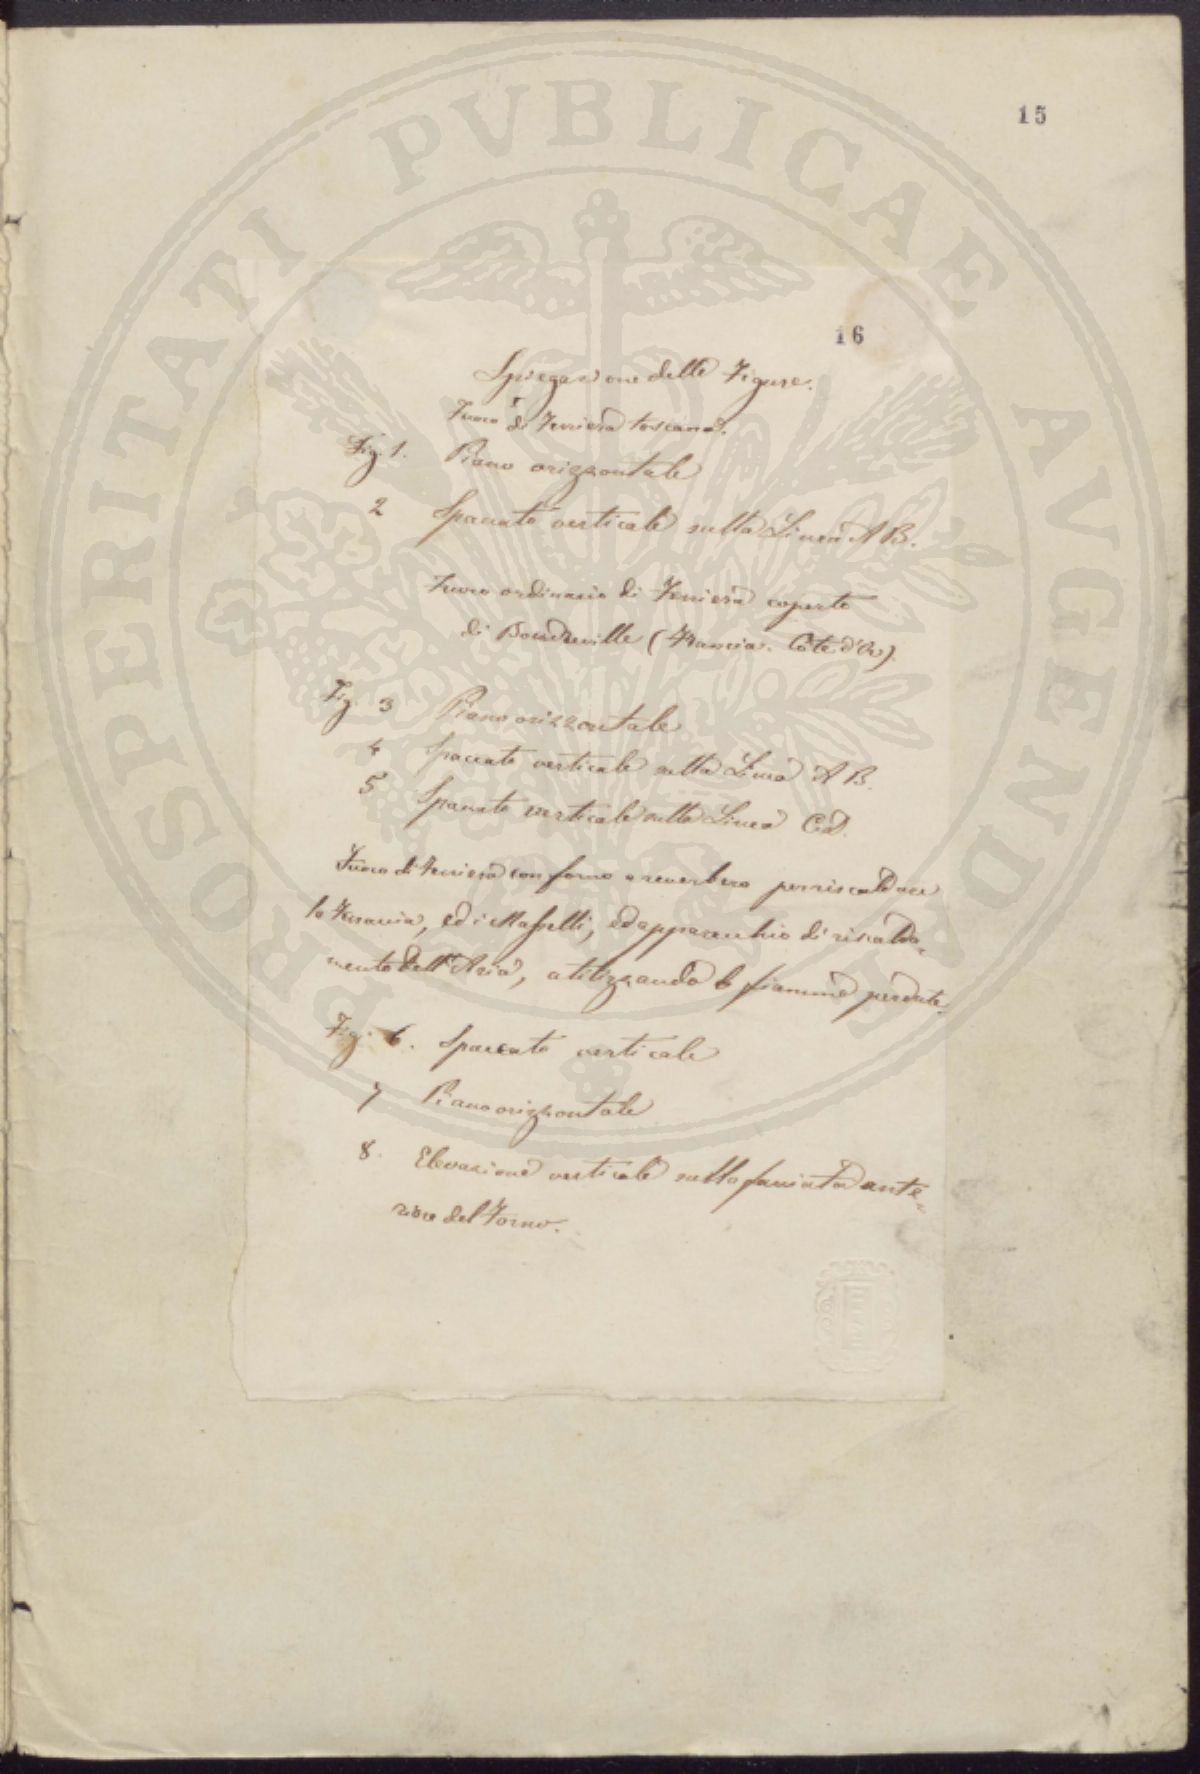 15
16
Spiegazione delle Figure.
Fuoco di Ferriera toscana.
Fig. 1. Piano orizzontale
2 Spaccato verticale sulla Linea A B.
Fuoco ordinario di Ferriera coperto
di Boudreville (Francia. Côte d'Or).
Fig. 3 Piano orizzontale
4 Spaccato verticale sulla Linea A B.
5 Spaccato verticale sulla Linea C D.
Fuoco di Ferriera con forno a reverbero per riscaldare
la Ferraccia, ed i Masselli, ed apparecchio di riscalda-
mento dell'Aria, utilizzando le fiamme perdute.
Fig. 6. Spaccato verticale
7 Piano orizzontale
8. Elevazione verticale sulla facciata ante-
riore del Forno.
PROSPERITATI PVBLICAE AVGENDAE